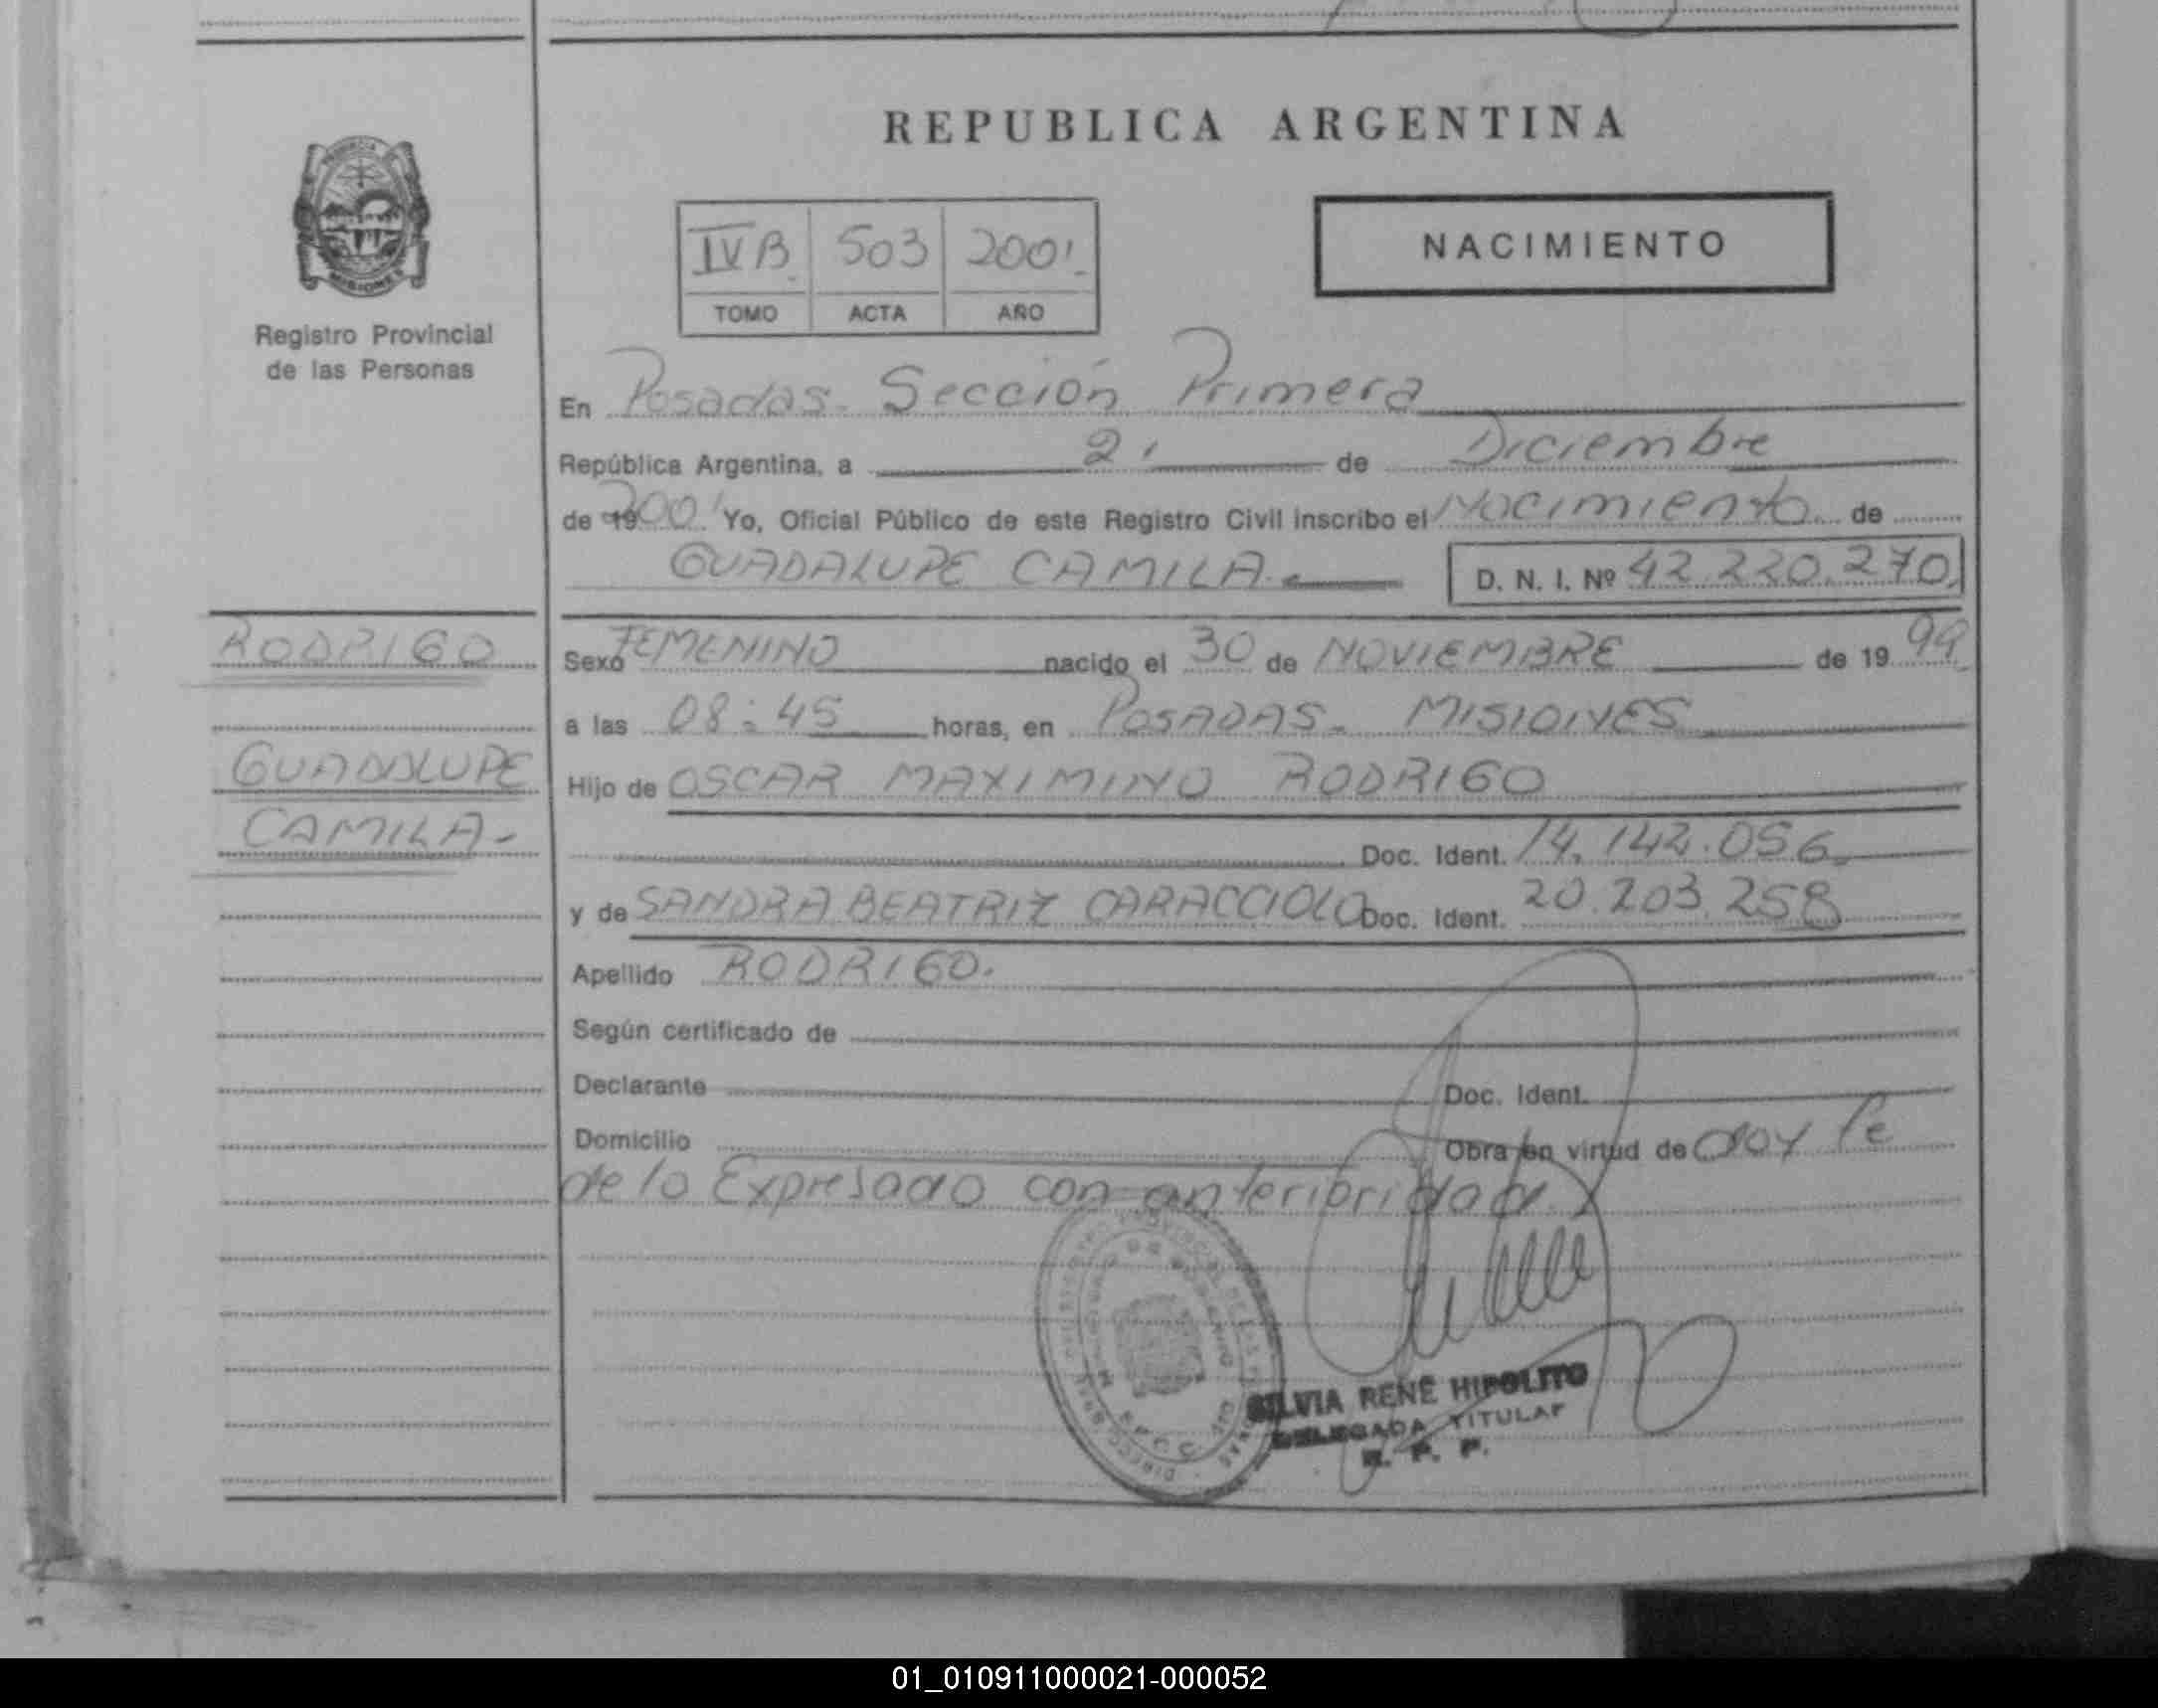 REPUBLICA ARGENTINA
PROVINCIA
MISIONES
Registro Provincial
de las Personas
IV B 503 2001
TOMO ACTA AÑO
NACIMIENTO
En Posadas - Sección Primera
República Argentina, a 21 de Diciembre
de 2001 Yo, Oficial Público de este Registro Civil inscribo el Nacimiento de
GUADALUPE CAMILA D. N. I. Nº 42.220.270
RODRIGO
Sexo FEMENINO nacido el 30 de NOVIEMBRE de 19 99
a las 08:45 horas, en POSADAS - MISIONES
GUADALUPE
Hijo de OSCAR MAXIMINO RODRIGO
CAMILA-
Doc. Ident. 14.142.056
y de SANDRA BEATRIZ CARACCIOLO Doc. Ident. 20.203.258
Apellido RODRIGO.
Según certificado de
Declarante Doc. Ident.
Domicilio Obra en virtud de doy fe
de lo Expresado con anterioridad.
SILVIA RENE HIPOLITO
DELEGADA TITULAR
R. P. P.
01_010911000021-000052